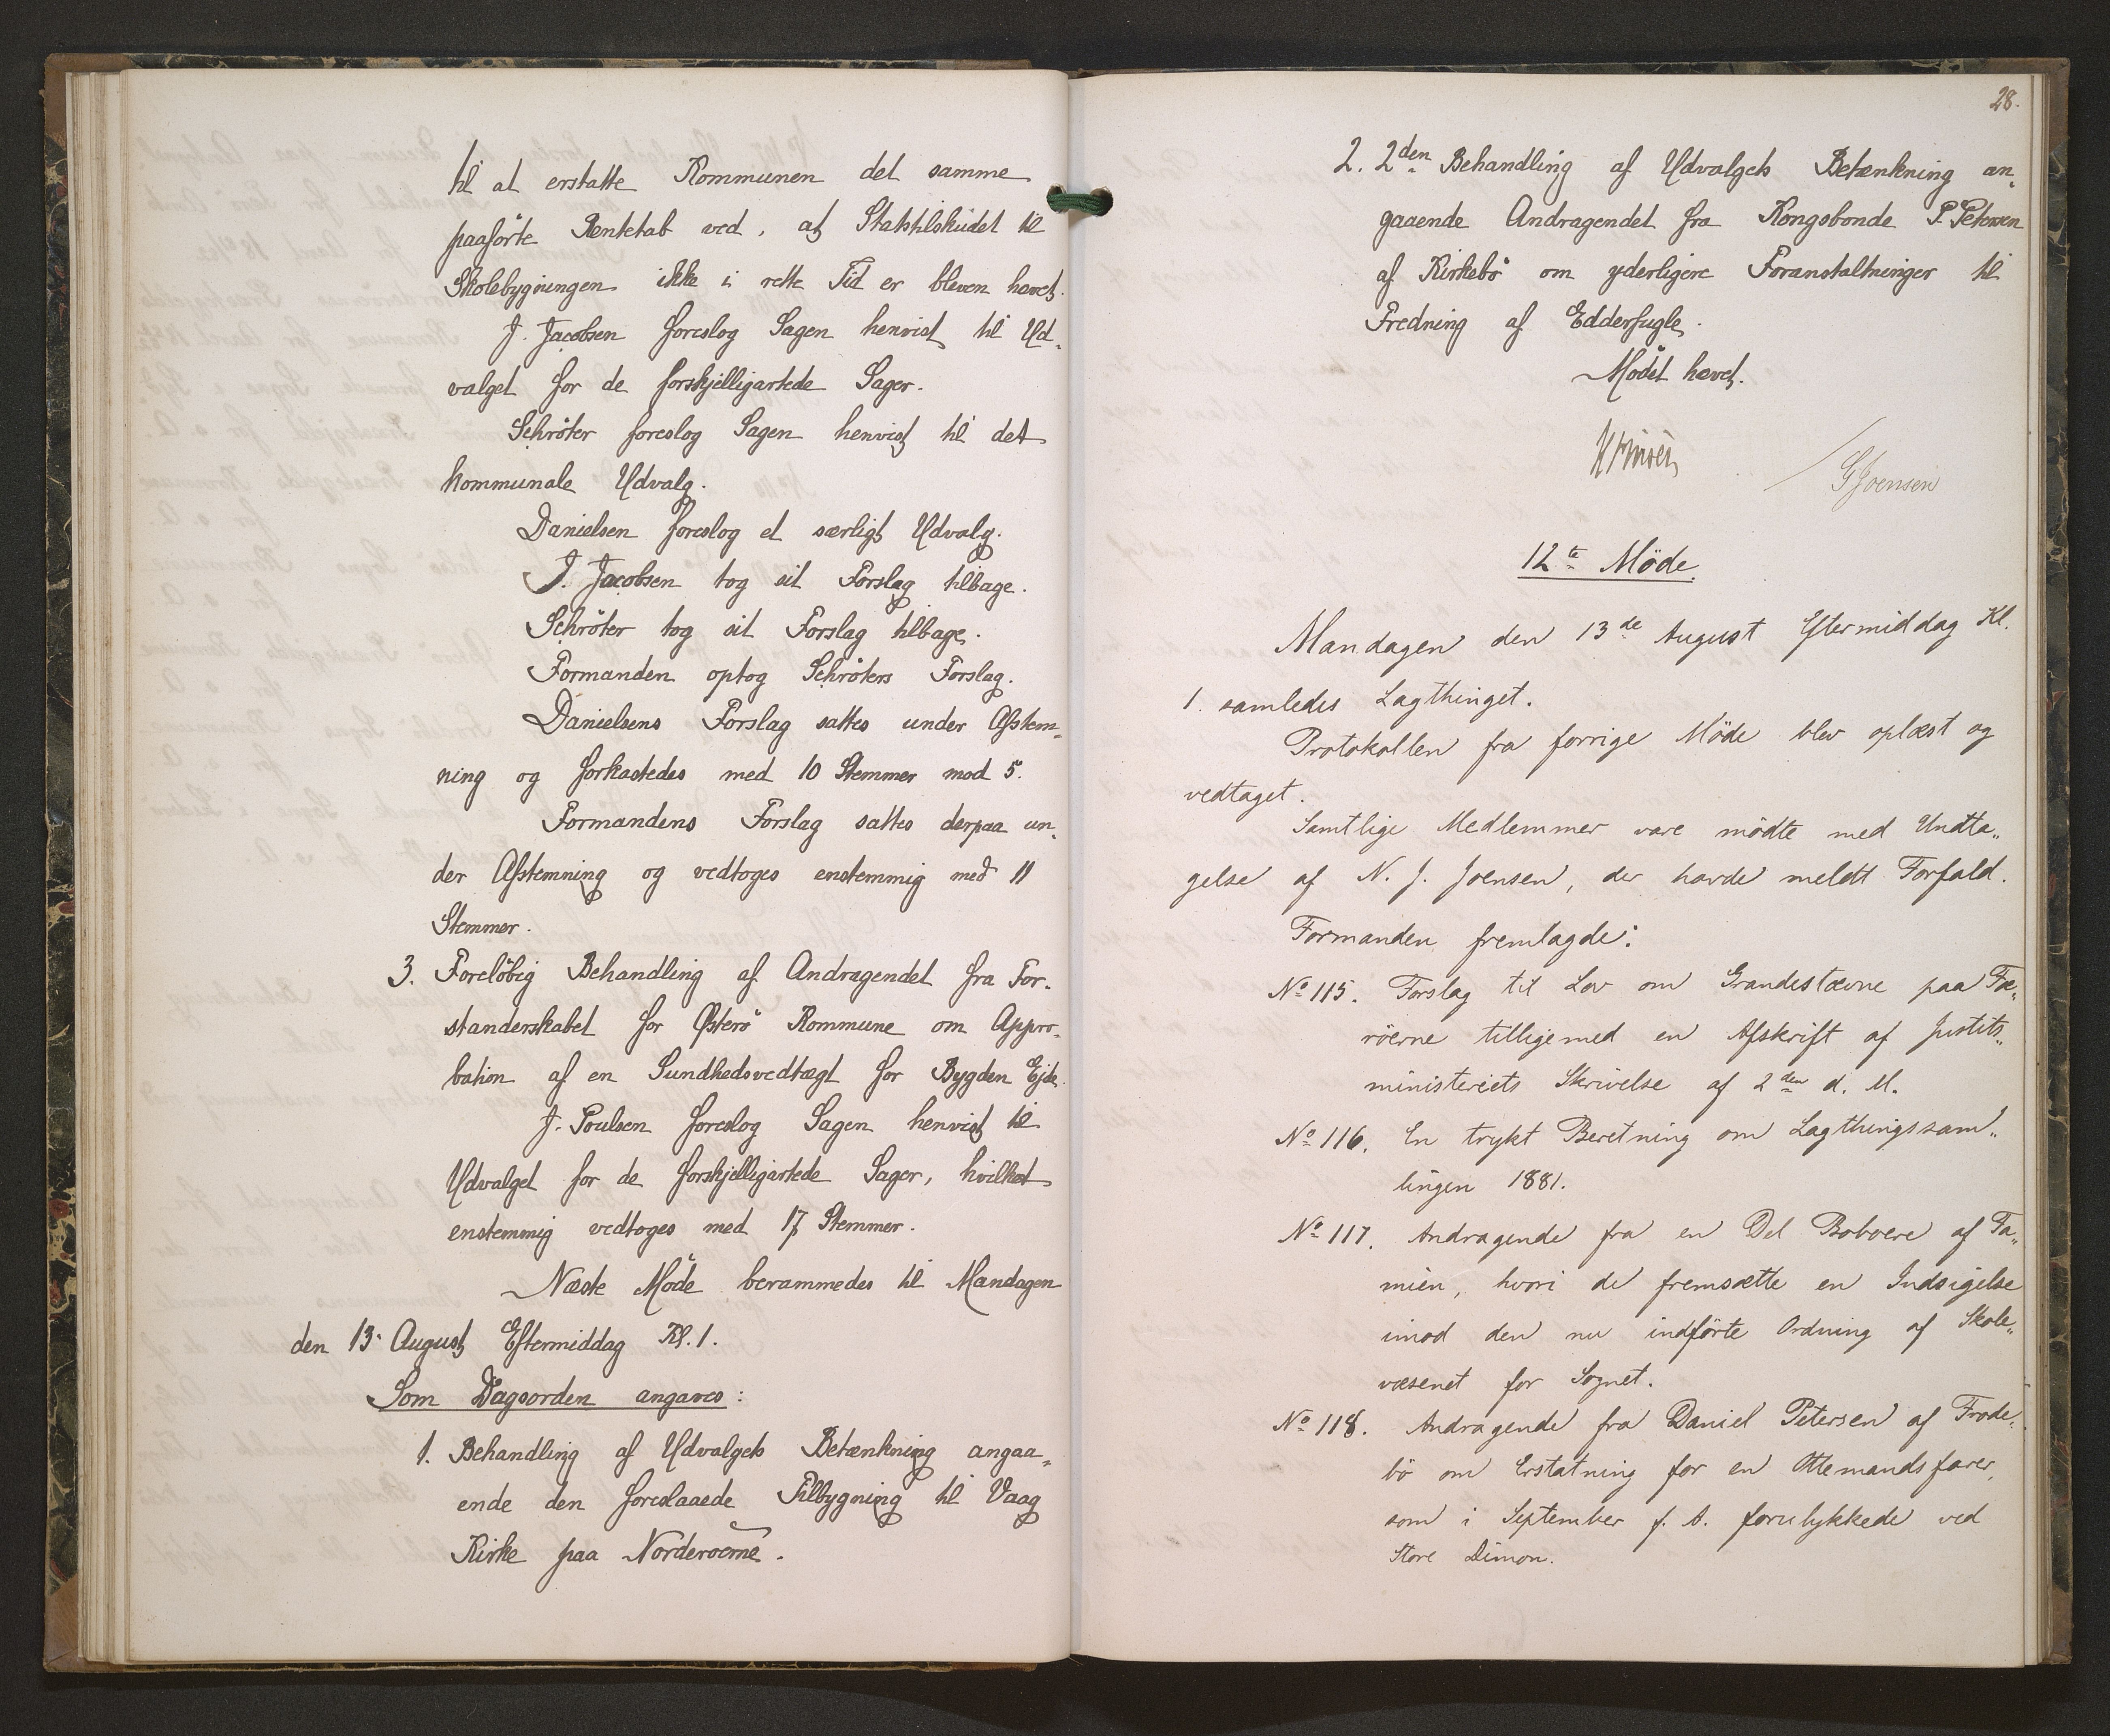 til at erstatte Kommunen det samme
paaførte Rentetab ved, at Statstilskudet til
Skolebygningen ikke i rette Tid er bleven hævet.
J. Jacobsen foreslog Sagen henvist til Ud„
valget for de forskjelligartede Sager.
Schröter foreslog Sagen henvist til det
kommunale Udvalg.
Danielsen foreslog et særligt Udvalg.
J. Jacobsen tog sit Forslag tilbage.
Schröter tog sit Forslag tilbage.
Formanden optog Schröters Forslag.
Danielsens Forslag sattes under Afstem„
ning og forkastedes med 10 Stemmer mod 5.
Formandens Forslag sattes derpaa un„
der Afstemning og vedtoges enstemmig med 11
Stemmer.
3. Foreløbig Behandling af Andragendet fra For„
standerskabet for Østerö Kommune om Appro„
bation af en Sundhedsvedtægt for Bygden Ejde.
J. Poulsen foreslog Sagen henvist til
Udvalget for de forskjelligartede Sager, hvilket
enstemmig vedtoges med 17 Stemmer.
Næste Möde berammedes til Mandagen
den 13. August Eftermiddag Kl. 1.
Som Dagsorden angaves:
1. Behandling af Udvalgets Betænkning angaa„
ende den foreslaaede Tilbygning til Vaag
Kirke paa Norderoerne.
28.
2. 2den Behandling af Udvalgets Betænkning an„
gaaende Andragendet fra Kongsbonde P. Petersen
af Kirkebö om yderligere Foranstaltninger til
Fredning af Edderfugle.
Mödet hævet.
HFinsen
GJoensen
12te Möde.
Mandagen den 13de August Eftermiddag Kl.
1. samledes Lagthinget.
Protokollen fra forrige Möde blev oplæst og
vedtaget.
Samtlige Medlemmer vare mödte med Undta„
gelse af N. J. Joensen, der havde meldt Forfald.
Formanden fremlagde:
No 115. Forslag til Lov om Grandestævne paa Fæ„
röerne tilligemed en Afskrift af Justits„
ministeriets Skrivelse af 2den d. M.
No 116. En trykt Beretning om Lagthingssam„
lingen 1881.
No 117. Andragende fra en Del Beboere af Fa„
mien, hvori de fremsætte en Indsigelse
imod den nu indförte Ordning af Skole„
væsenet for Sognet.
No 118. Andragende fra Daniel Petersen af Frode„
bö om Erstatning for en Ottemandsfarer,
som i September f. A. forulykkede ved
Store Dimon.